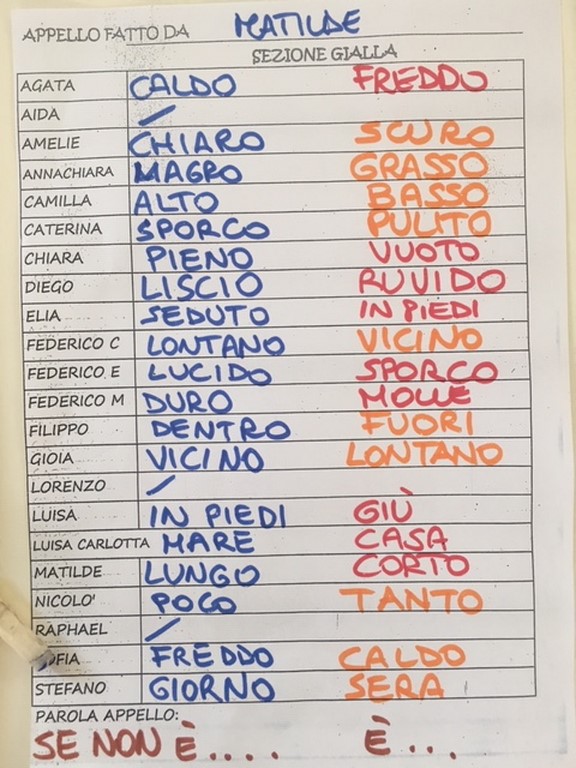 APPELLO FATTO DA MATILDE
SEZIONE GIALLA
AGATA CALDO FREDDO
AIDA /
AMELIE CHIARO SCURO
ANNACHIARA MAGRO GRASSO
CAMILLA ALTO BASSO
CATERINA SPORCO PULITO
CHIARA PIENO VUOTO
DIEGO LISCIO RUVIDO
ELIA SEDUTO IN PIEDI
FEDERICO C LONTANO VICINO
FEDERICO E LUCIDO SPORCO
FEDERICO M DURO MOLLE
FILIPPO DENTRO FUORI
GIOIA VICINO LONTANO
LORENZO /
LUISA IN PIEDI GIÙ
LUISA CARLOTTA MARE CASA
MATILDE LUNGO CORTO
NICOLO' POCO TANTO
RAPHAEL /
SOFIA FREDDO CALDO
STEFANO GIORNO SERA
PAROLA APPELLO:
SE NON È.... È...